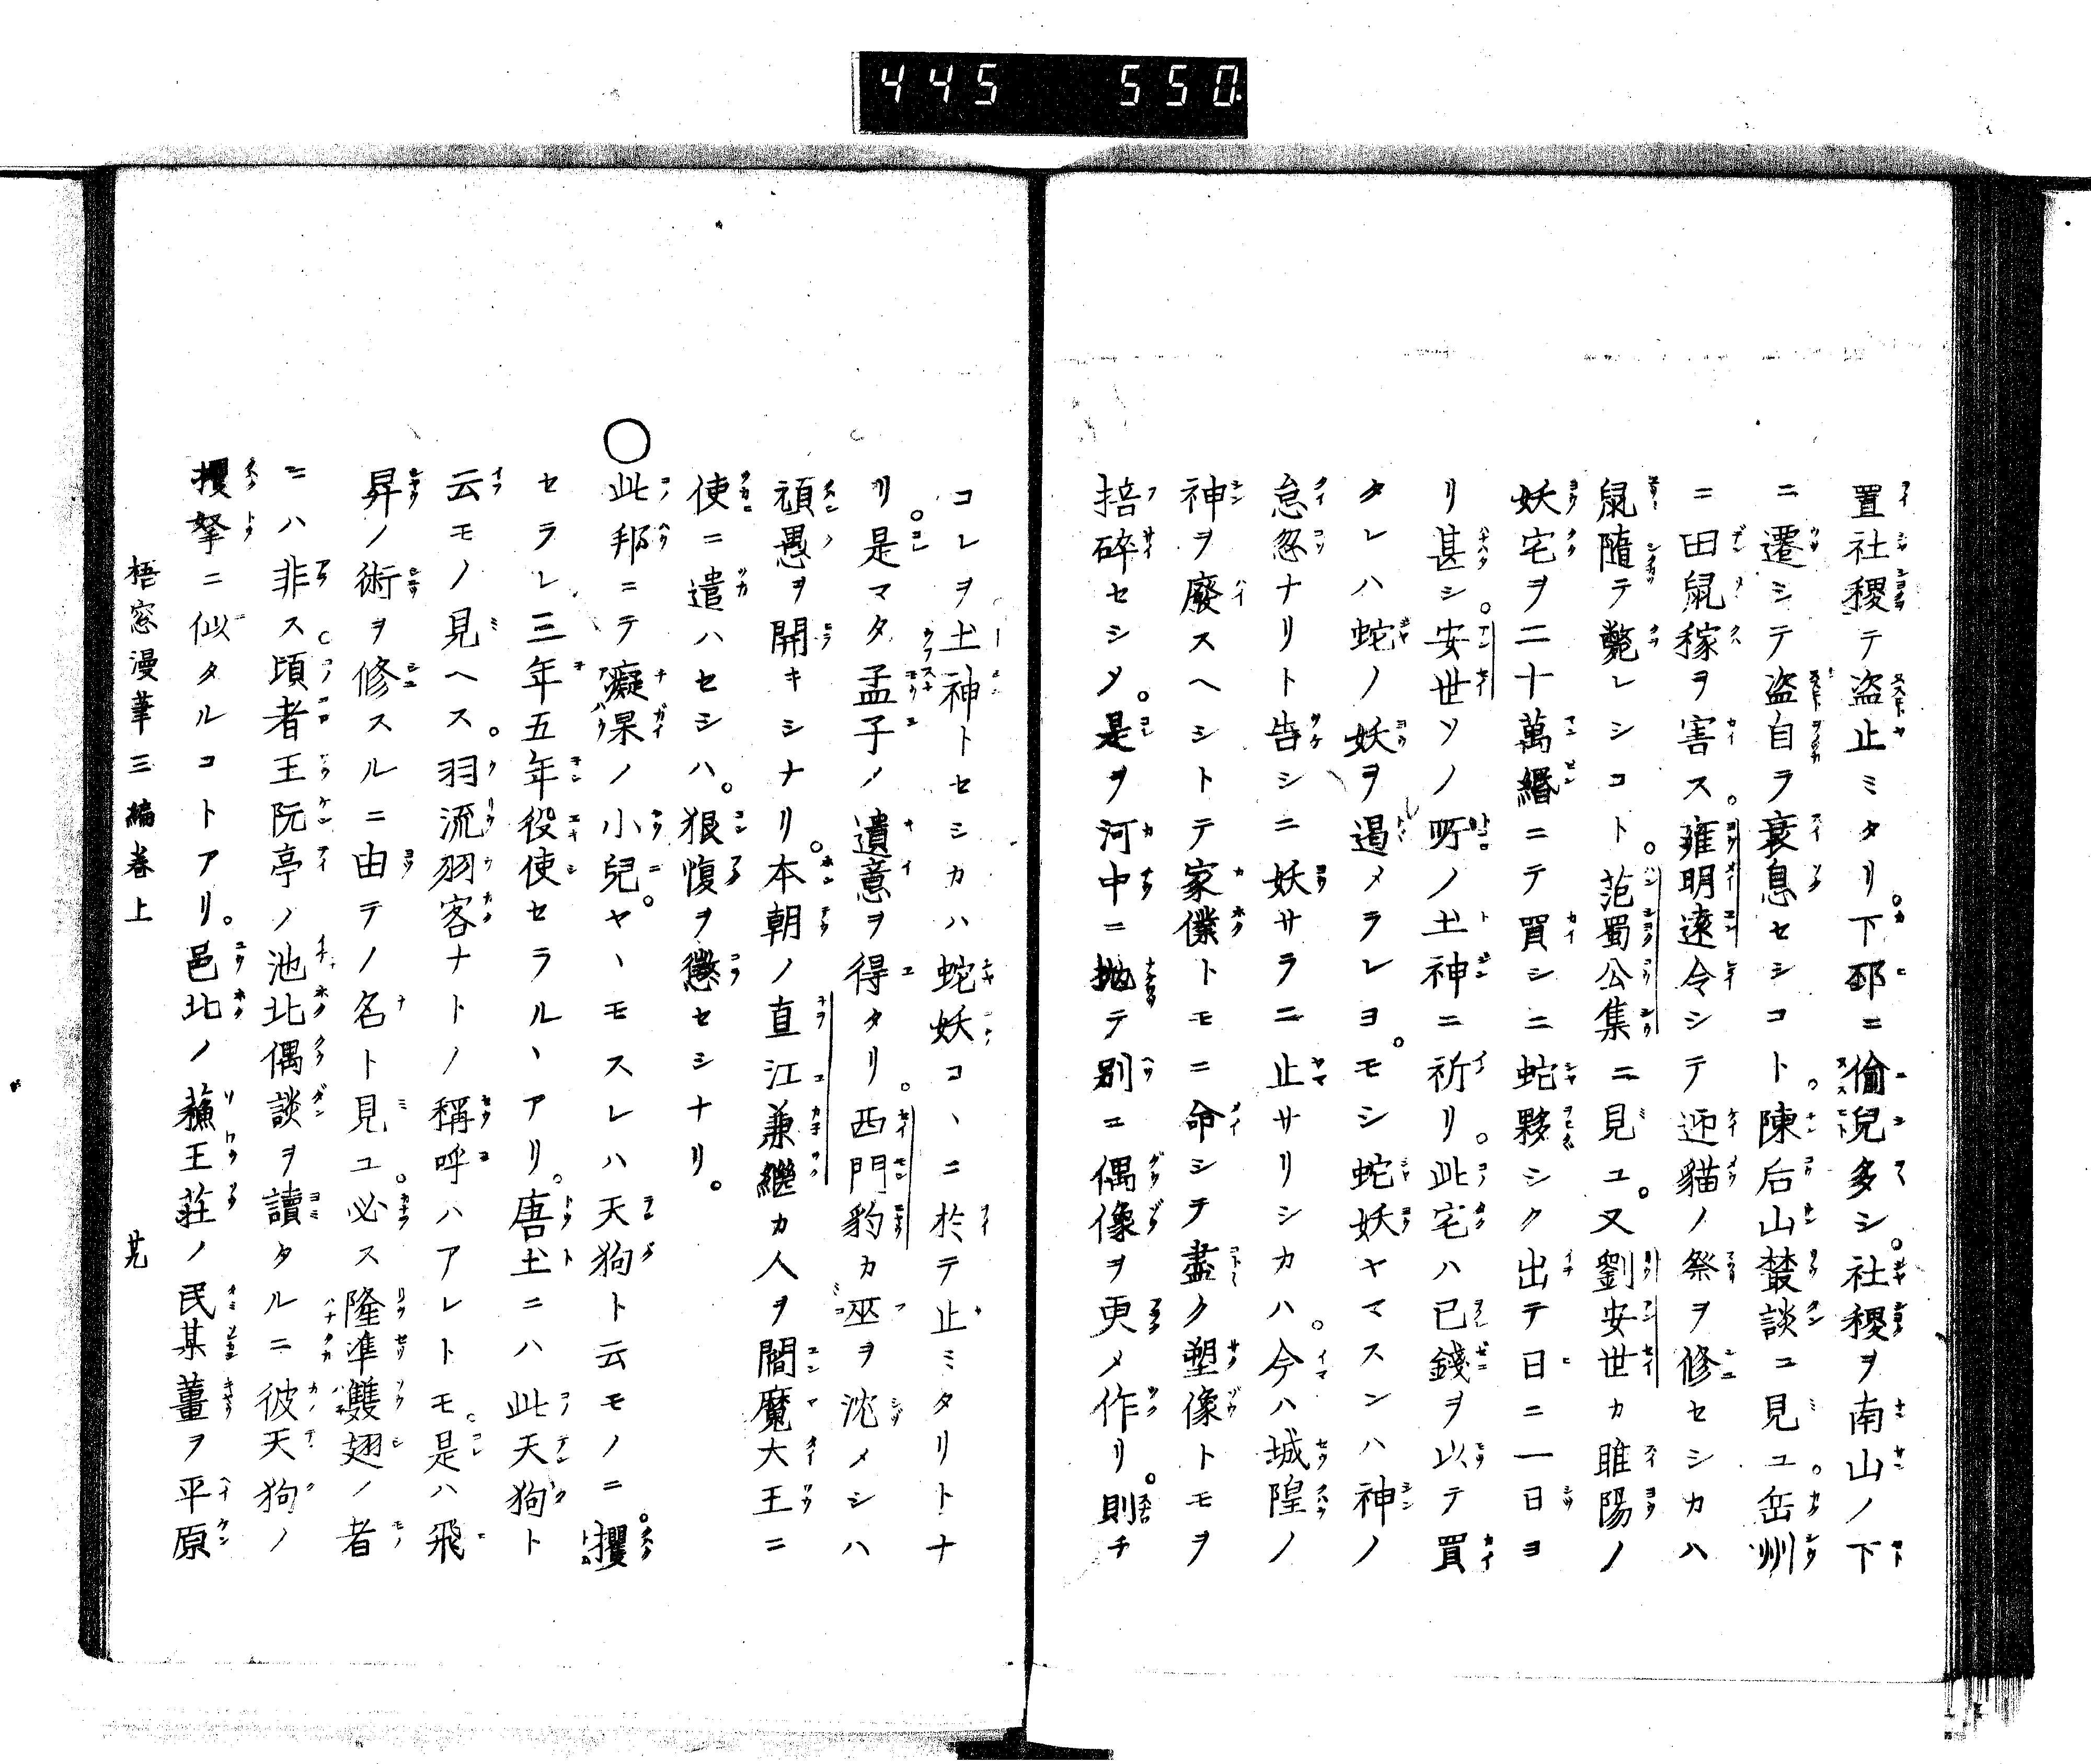 445 550.
置社稷テ盗止ミタリ。下邳ニ偷兒多シ。社稷ヲ南山ノ下
ニ遷シテ盗自ラ衰息セシコト。陳后山叢談ニ見ユ。岳州
ニ田鼠稼ヲ害ス。雍明遠令シテ迎貓ノ祭ヲ修セシカハ
鼠隨テ斃レシコト。范蜀公集ニ見ユ。又劉安世カ睢陽ノ
妖宅ヲ二十萬緡ニテ買シニ蛇夥シク出テ日ニ一日ヨ
リ甚シ。安世ソノ所ノ土神ニ祈リ。此宅ハ已錢ヲ以テ買
タレハ蛇ノ妖ヲ遏メラレヨ。モシ蛇妖ヤマスンハ神ノ
怠忽ナリト告シニ妖サラニ止サリシカハ。今ハ城隍ノ
神ヲ廢スヘシトテ家僕トモニ命シテ盡ク塑像トモヲ
掊碎セシメ。是ヲ河中ニ拋テ別ニ偶像ヲ更メ作リ。則チ
コレヲ土神トセシカハ蛇妖コヽニ於テ止ミタリトナ
リ。是マタ孟子ノ遺意ヲ得タリ。西門豹カ巫ヲ沈メシハ
頑愚ヲ開キシナリ。本朝ノ直江兼繼カ人ヲ閻魔大王ニ
使ニ遣ハセシハ。狠愎ヲ懲セシナリ。
○此邦ニテ癡呆ノ小兒。ヤヽモスレハ天狗ト云モノニ。攫
セラレ三年五年役使セラルヽアリ。唐土ニハ此天狗ト
云モノ見ヘス。羽流羽客ナトノ稱呼ハアレトモ。是ハ飛
昇ノ術ヲ修スルニ由テノ名ト見ユ。必ス隆準雙翅ノ者
ニハ非ス。頃者王阮亭ノ池北偶談ヲ讀タルニ彼天狗ノ
攫拏ニ似タルコトアリ。邑北ノ蘓王莊ノ民某薑ヲ平原
梧窓漫筆三編卷上 廿九